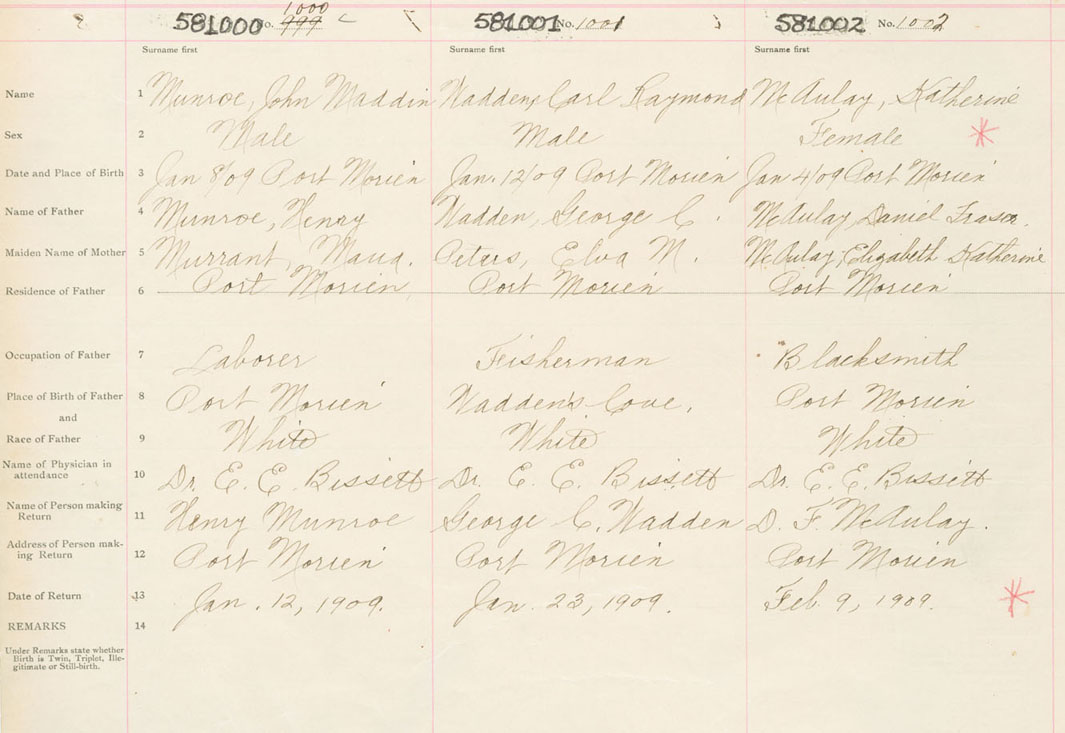 581000 No. 999 1000 581001 No. 1001 581002 No. 1002
Surname first Surname first Surname first
Name 1 Munroe, John Maddin Wadden, Carl Raymond McAulay, Katherine
Sex 2 Male Male Female
Date and Place of Birth 3 Jan 8/09 Port Morien Jan. 12/09 Port Morien Jan 4/09 Port Morien
Name of Father 4 Munroe, Henry Wadden, George C. McAulay, Daniel Fraser.
Maiden Name of Mother 5 Murrant, Maud. Peters, Elva M. McAulay, Elizabeth Katherine
Residence of Father 6 Port Morien Port Morien Port Morien
Occupation of Father 7 Laborer Fisherman Blacksmith
Place of Birth of Father 8 Port Morien Wadden's Cove. Port Morien
and
Race of Father 9 White White White
Name of Physician in
attendance 10 Dr. E. E. Bissett Dr. E. E. Bissett Dr. E. E. Bissett
Name of Person making
Return 11 Henry Munroe George C. Wadden D. F. McAulay.
Address of Person mak-
ing Return 12 Port Morien Port Morien Port Morien
Date of Return 13 Jan. 12, 1909. Jan. 23, 1909. Feb 9, 1909.
REMARKS 14
Under Remarks state whether
Birth is Twin, Triplet, Ille-
gitimate or Still-birth.